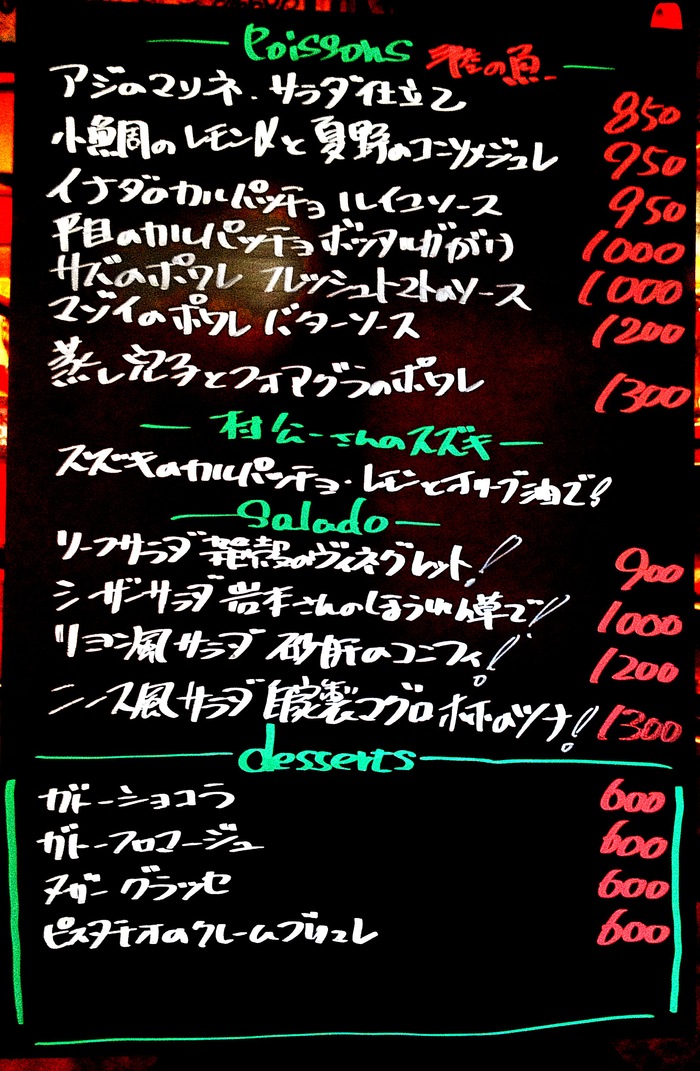 Poissons の魚
アジのマリネ.サラダ仕立て 850
小鯛のレモン〆と夏野のコンソメジュレ 950
イナダのカルパッチョ ルイユソース 950
平目のカルパッチョボッタルガがけ 1000
サバのポワレ フレッシュトマトのソース 1000
マゾイのポワレ バターソース 1200
蒸し穴子とフォアグラのポワレ 1300
村公一さんのスズキ
スズキのカルパッチョ・レモンとオリーブ油で!
Salado
リーフサラダ 発酵のヴィネグレット! 900
シーザーサラダ 岩手さんのほうれん草で! 1000
リヨン風サラダ 砂肝のコンフィ! 1200
ニース風サラダ 自家製マグロホホのツナ! 1300
desserts
ガトーショコラ 600
ガトーフロマージュ 600
ヌガーグラッセ 600
ピスタチオのクレームブリュレ 600